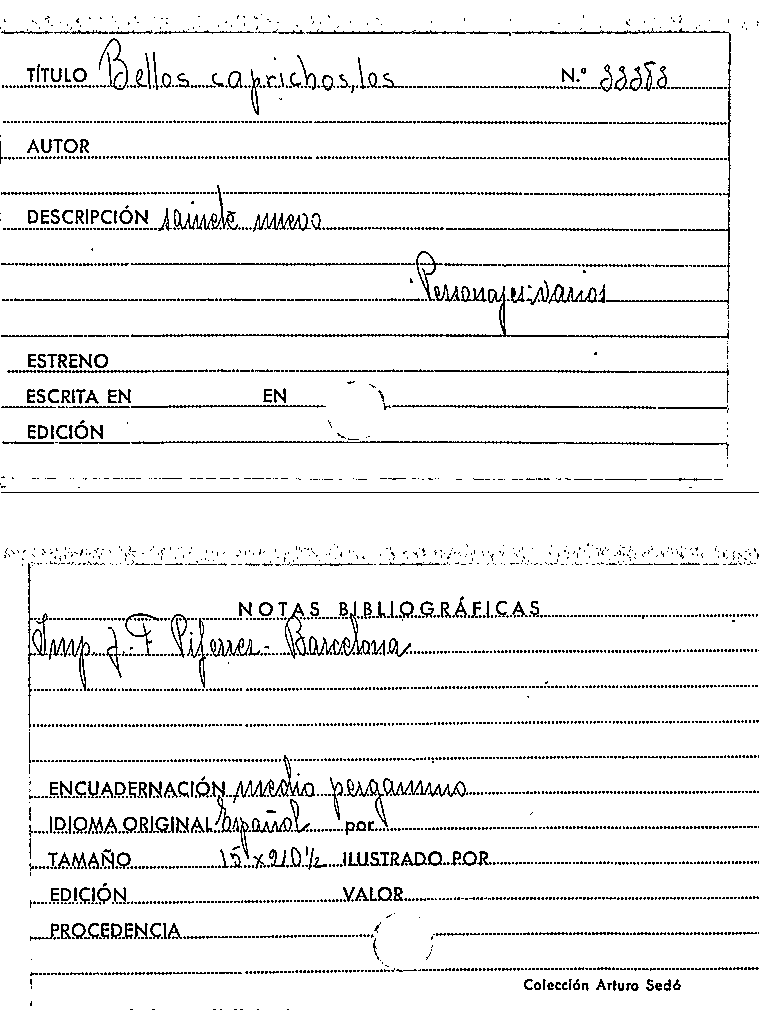 TÍTULO Bellos caprichos, los N.º 33353
AUTOR
DESCRIPCIÓN sainete nuevo
Personajes: varios
ESTRENO
ESCRITA EN EN
EDICIÓN
NOTAS BIBLIOGRÁFICAS
Imp J. F Piferrer - Barcelona
ENCUADERNACIÓN medio pergamino
IDIOMA ORIGINAL Español por
TAMAÑO 15 x 210½ ILUSTRADO POR
EDICIÓN VALOR
PROCEDENCIA
Colección Arturo Sedó